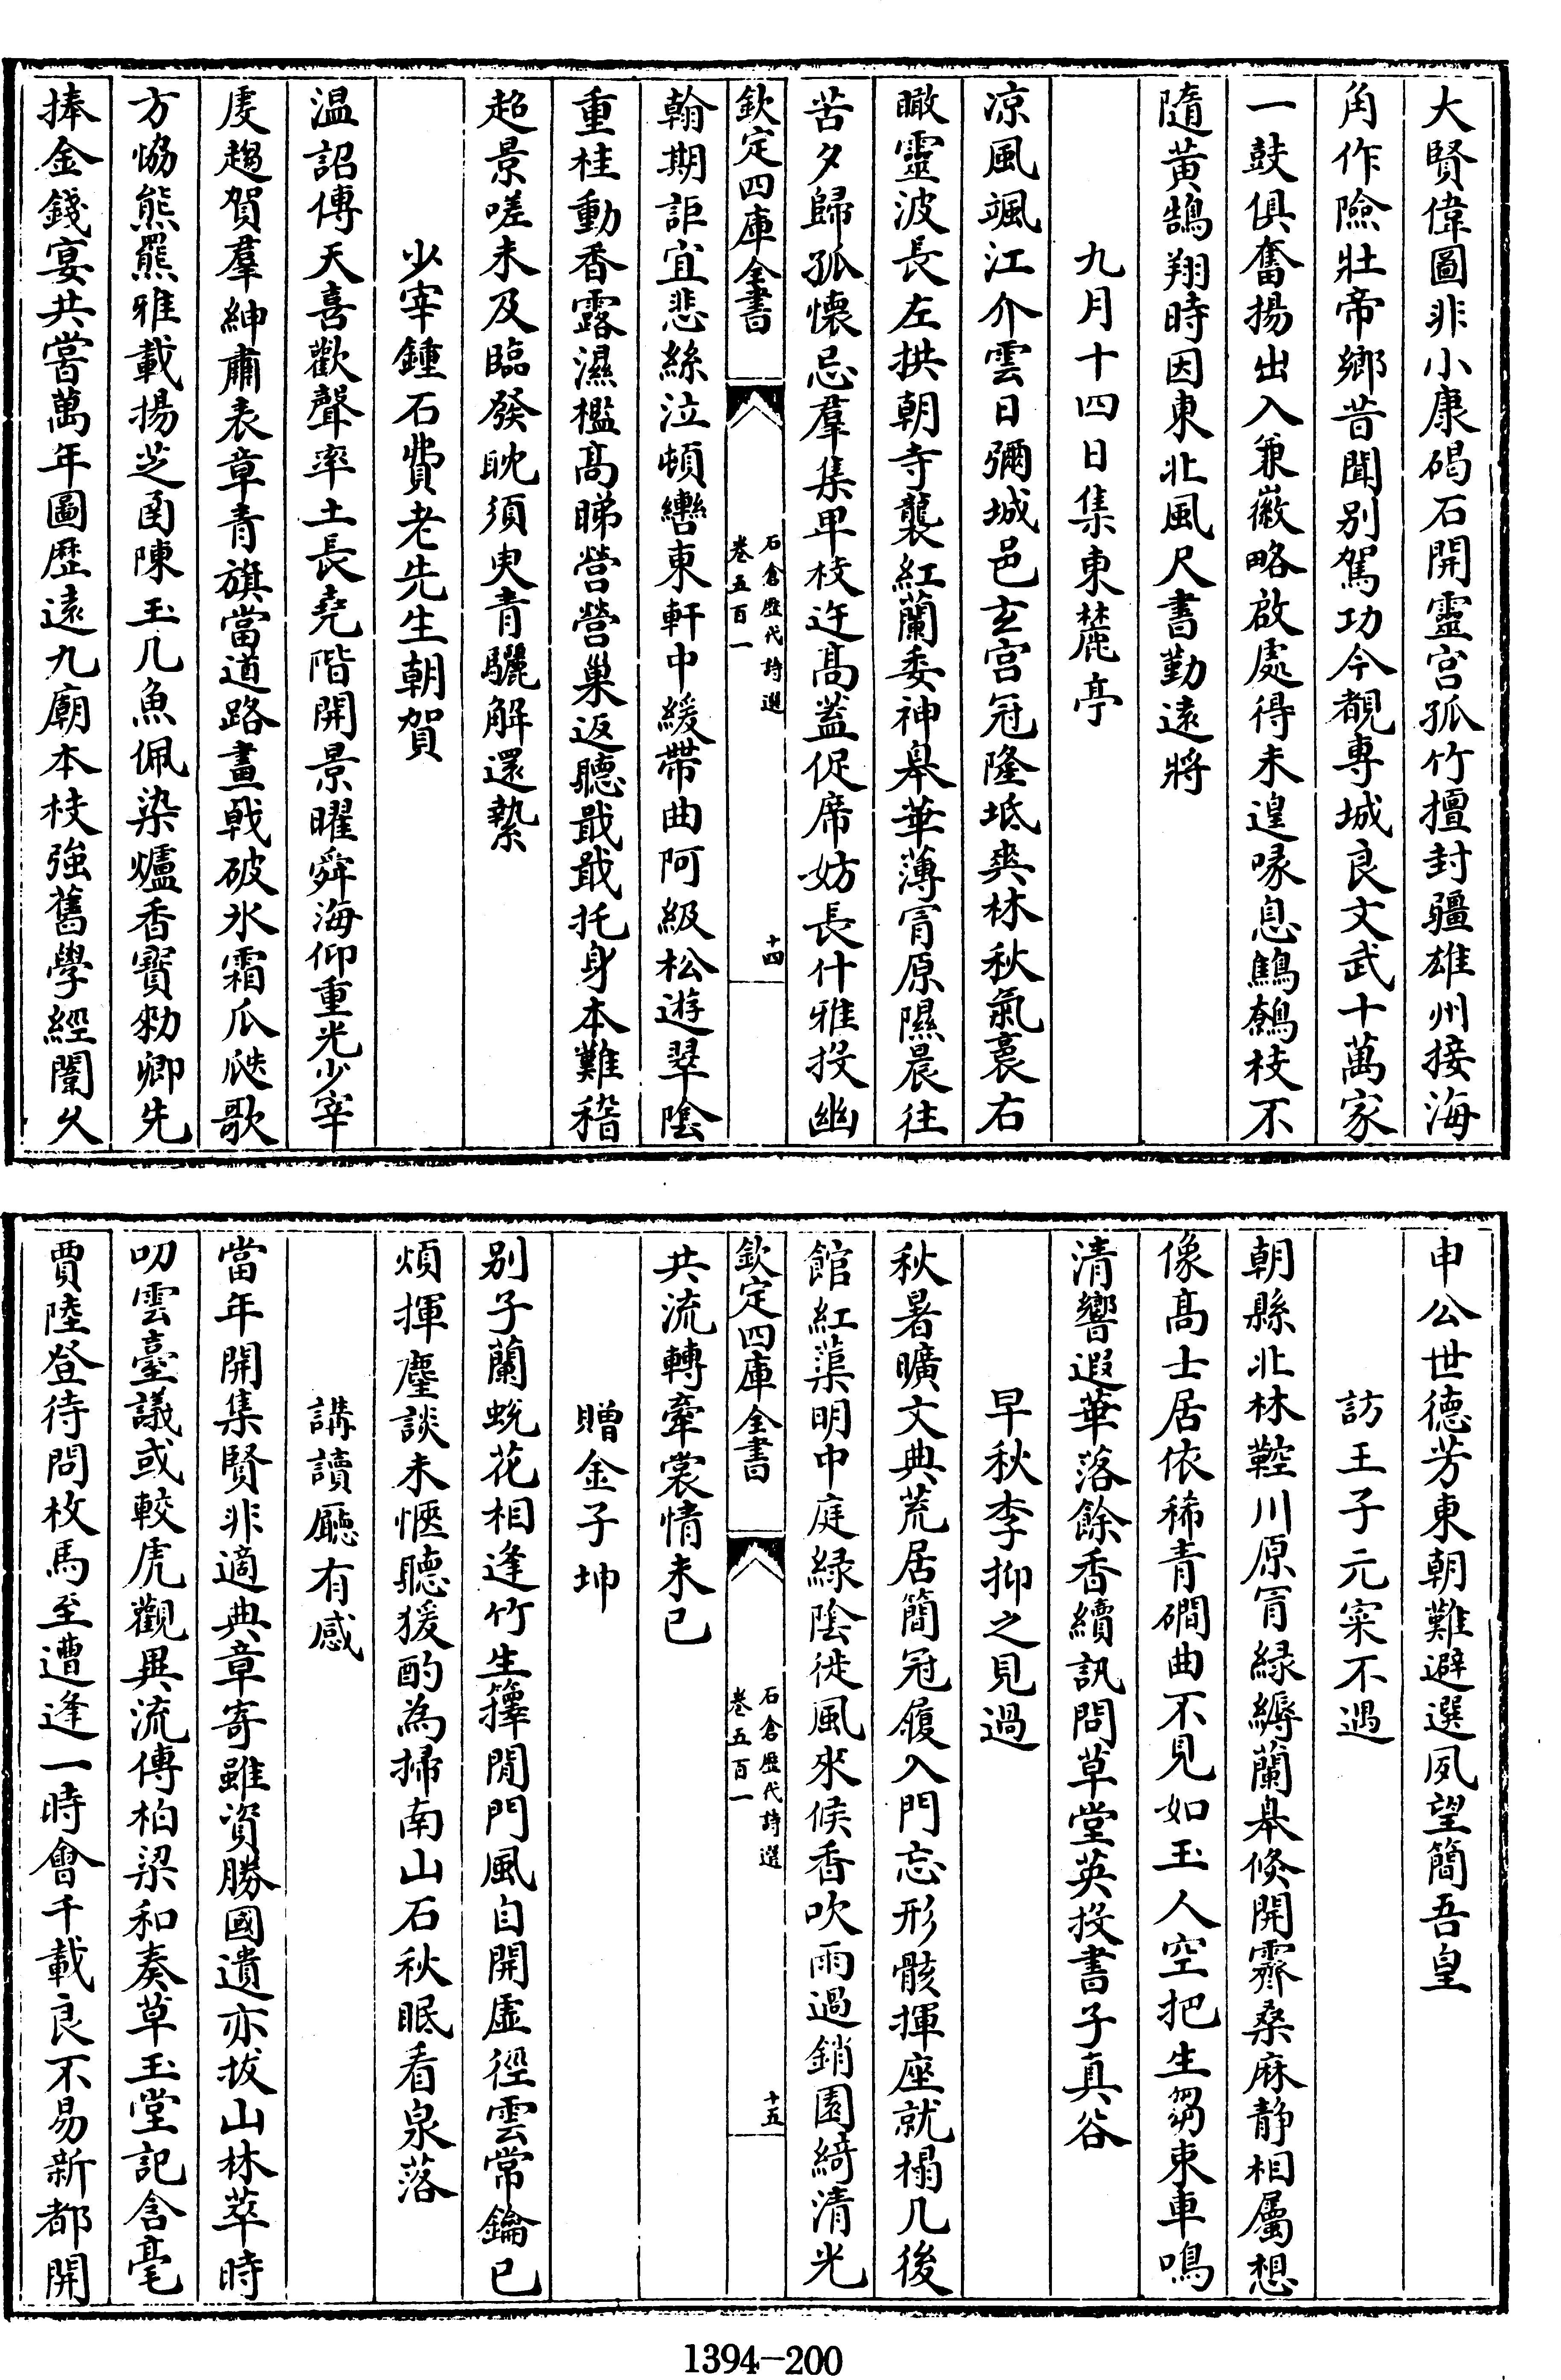 大賢偉圖非小康碣石開靈宫孤竹擅封疆雄州接海
角作險壯帝鄉昔聞别駕功今覩專城良文武十萬家
一鼓俱奮揚出入兼徽略啟處得未遑喙息鷦鷯枝不
隨黄鵠翔時因東北風尺書勤遠將
九月十四日集東麓亭
凉風颯江介雲日彌城邑玄宫冠隆坻爽林秋氣裛右
瞰靈波長左拱朝寺襲紅蘭委神臯華薄罥原隰晨往
苦夕歸孤懷忌羣集甲枝迕髙蓋促席妨長什雅投幽
欽定四庫全書
石倉歴代詩選
卷五百一
十四
翰期詎宜悲絲泣頓轡東軒中緩帶曲阿級松遊翠陰
重桂動香露濕檻髙睇營營巢返聽戢戢托身本難稽
超景嗟未及臨發眈須臾青驪解還縶
少宰鍾石費老先生朝賀
温詔傳天喜歡聲率土長堯階開景曜舜海仰重光少宰
虔趨賀羣紳肅表章青旗當道路畫戟破氷霜瓜瓞歌
方恊熊羆雅載揚芝函陳玉几魚佩染爐香寳勑卿先
捧金錢宴共嘗萬年圖歴遠九廟本枝強舊學經闈久
申公世德芳東朝難避選夙望簡吾皇
訪王子元寀不遇
朝縣北林鞚川原罥緑縟蘭臯倐開霽桑麻静相屬想
像髙士居依稀青磵曲不見如玉人空把生芻束車鳴
清響遐華落餘香續訊問草堂英投書子真谷
早秋李抑之見過
秋暑曠文典荒居簡冠履入門忘形骸揮座就榻几後
館紅蕖明中庭緑陰徙風來候香吹雨過銷園綺清光
欽定四庫全書
石倉歴代詩選
卷五百一
十五
共流轉牽裳情未已
贈金子坤
别子蘭蛻花相逢竹生籜閒門風自開虚徑雲常鑰已
煩揮塵談未愜聽猨酌為掃南山石秋眠看泉落
講讀廳有感
當年開集賢非適典章寄雖資勝國遺亦拔山林萃時
叨雲臺議或較虎觀異流傳柏梁和奏草玉堂記含毫
賈陸登待問枚馬至遭逢一時會千載良不易新都開
1394—200